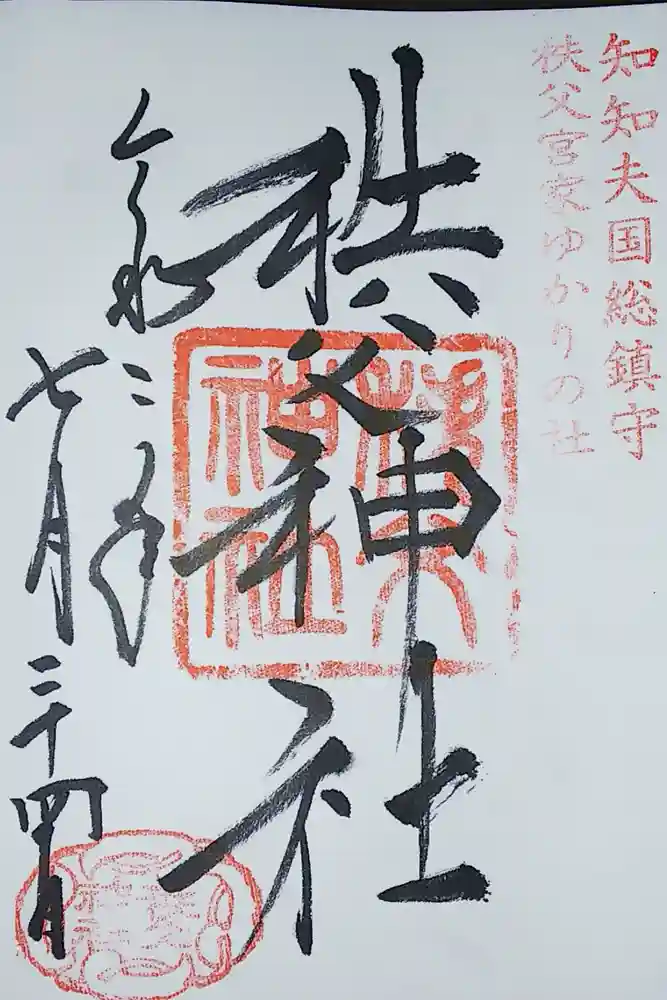 知知夫国総鎮守
秩父宮家ゆかりの社
秩父神社
秩父神社
令和二年
七月二十四日